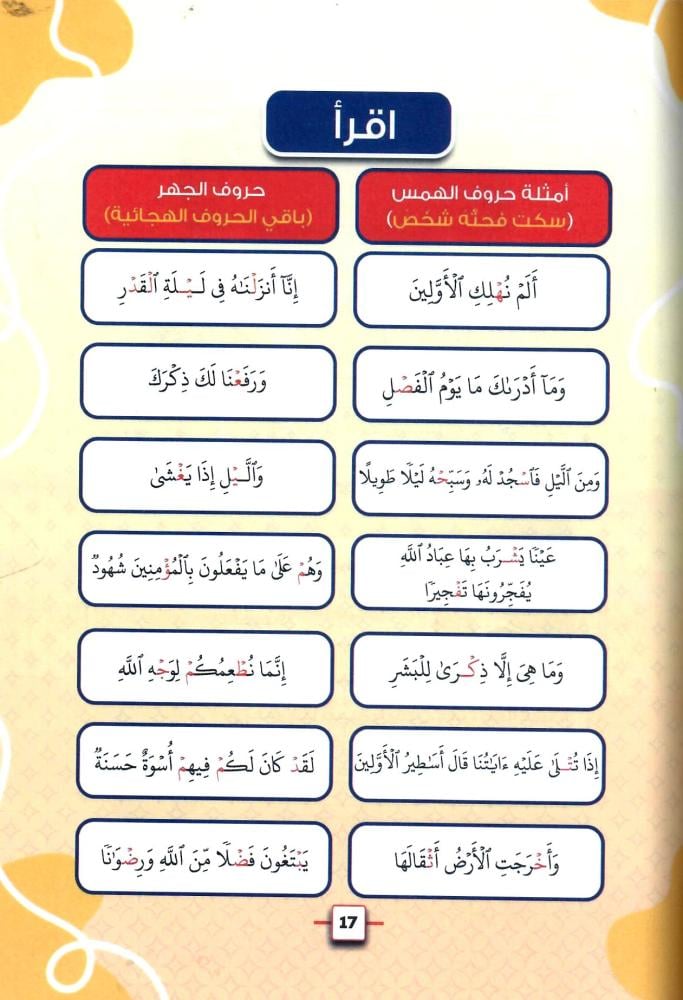 اقرأ
أمثلة حروف الهمس
(سكت فحثه شخص)
حروف الجهر
(باقي الحروف الهجائية)
أَلَمْ نُهْلِكِ ٱلْأَوَّلِينَ
إِنَّآ أَنزَلْنَـٰهُ فِى لَـيْـلَةِ ٱلْقَدْرِ
وَمَآ أَدْرَىٰكَ مَا يَوْمُ ٱلْفَصْلِ
وَرَفَعْنَا لَكَ ذِكْرَكَ
وَمِنَ ٱلَّيْلِ فَٱسْجُدْ لَهُۥ وَسَبِّحْهُ لَيْلًا طَوِيلًا
وَٱلَّـيْلِ إِذَا يَغْشَىٰ
عَيْنًا يَشْـرَبُ بِهَا عِبَادُ ٱللَّهِ
يُفَجِّرُونَهَا تَفْجِيرًا
وَهُمْ عَلَىٰ مَا يَفْعَلُونَ بِٱلْمُؤْمِنِينَ شُهُودٌ
وَمَا هِىَ إِلَّا ذِكْـرَىٰ لِلْبَشَرِ
إِنَّمَا نُطْعِمُكُمْ لِوَجْهِ ٱللَّهِ
إِذَا تُتْـلَىٰ عَلَيْهِ ءَايَـٰتُنَا قَالَ أَسَـٰطِيرُ ٱلْأَوَّلِينَ
لَقَدْ كَانَ لَكُمْ فِيهِمْ أُسْوَةٌ حَسَنَةٌ
وَأَخْرَجَتِ ٱلْأَرْضُ أَثْقَالَهَا
يَبْتَغُونَ فَضْلًا مِّنَ ٱللَّهِ وَرِضْوَٰنًا
17